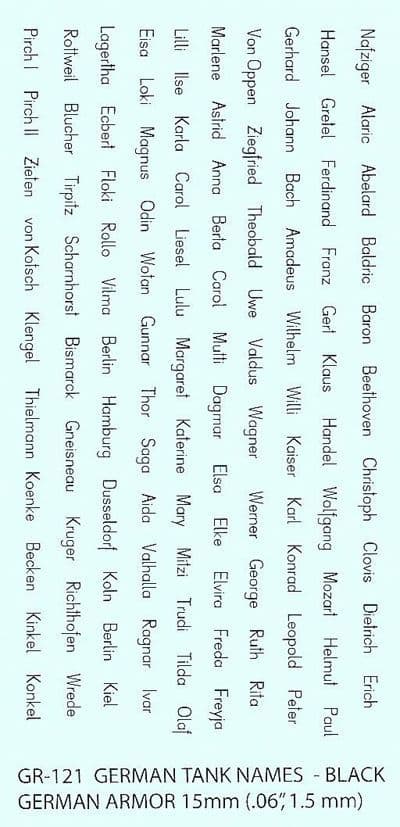 Nafziger Alaric Abelard Baldric Baron Beethoven Christoph Clovis Dietrich Erich
Hansel Gretel Ferdinand Franz Gert Klaus Handel Wolfgang Mozart Helmut Paul
Gerhard Johann Bach Amadeus Wilhelm Willi Kaiser Karl Konrad Leopold Peter
Von Oppen Ziegfried Theobald Uwe Valdus Wagner Werner George Ruth Rita
Marlene Astrid Anna Berta Carol Mutti Dagmar Elsa Elke Elvira Freda Freyja
Lilli Ilse Karla Carol Liesel Lulu Margaret Katerine Mary Mitzi Trudi Tilda Olaf
Eisa Loki Magnus Odin Wotan Gunnar Thor Saga Aida Valhalla Ragnar Ivar
Lagertha Ecbert Floki Rollo Vilma Berlin Hamburg Dusseldorf Koln Berlin Kiel
Rottweil Blucher Tirpitz Scharnhorst Bismarck Gneisneau Kruger Richthofen Wrede
Pirch I Pirch II Zieten von Kotsch Klengel Thielmann Koenke Becken Kinkel Konkel
GR-121 GERMAN TANK NAMES - BLACK
GERMAN ARMOR 15mm (.06", 1.5 mm)